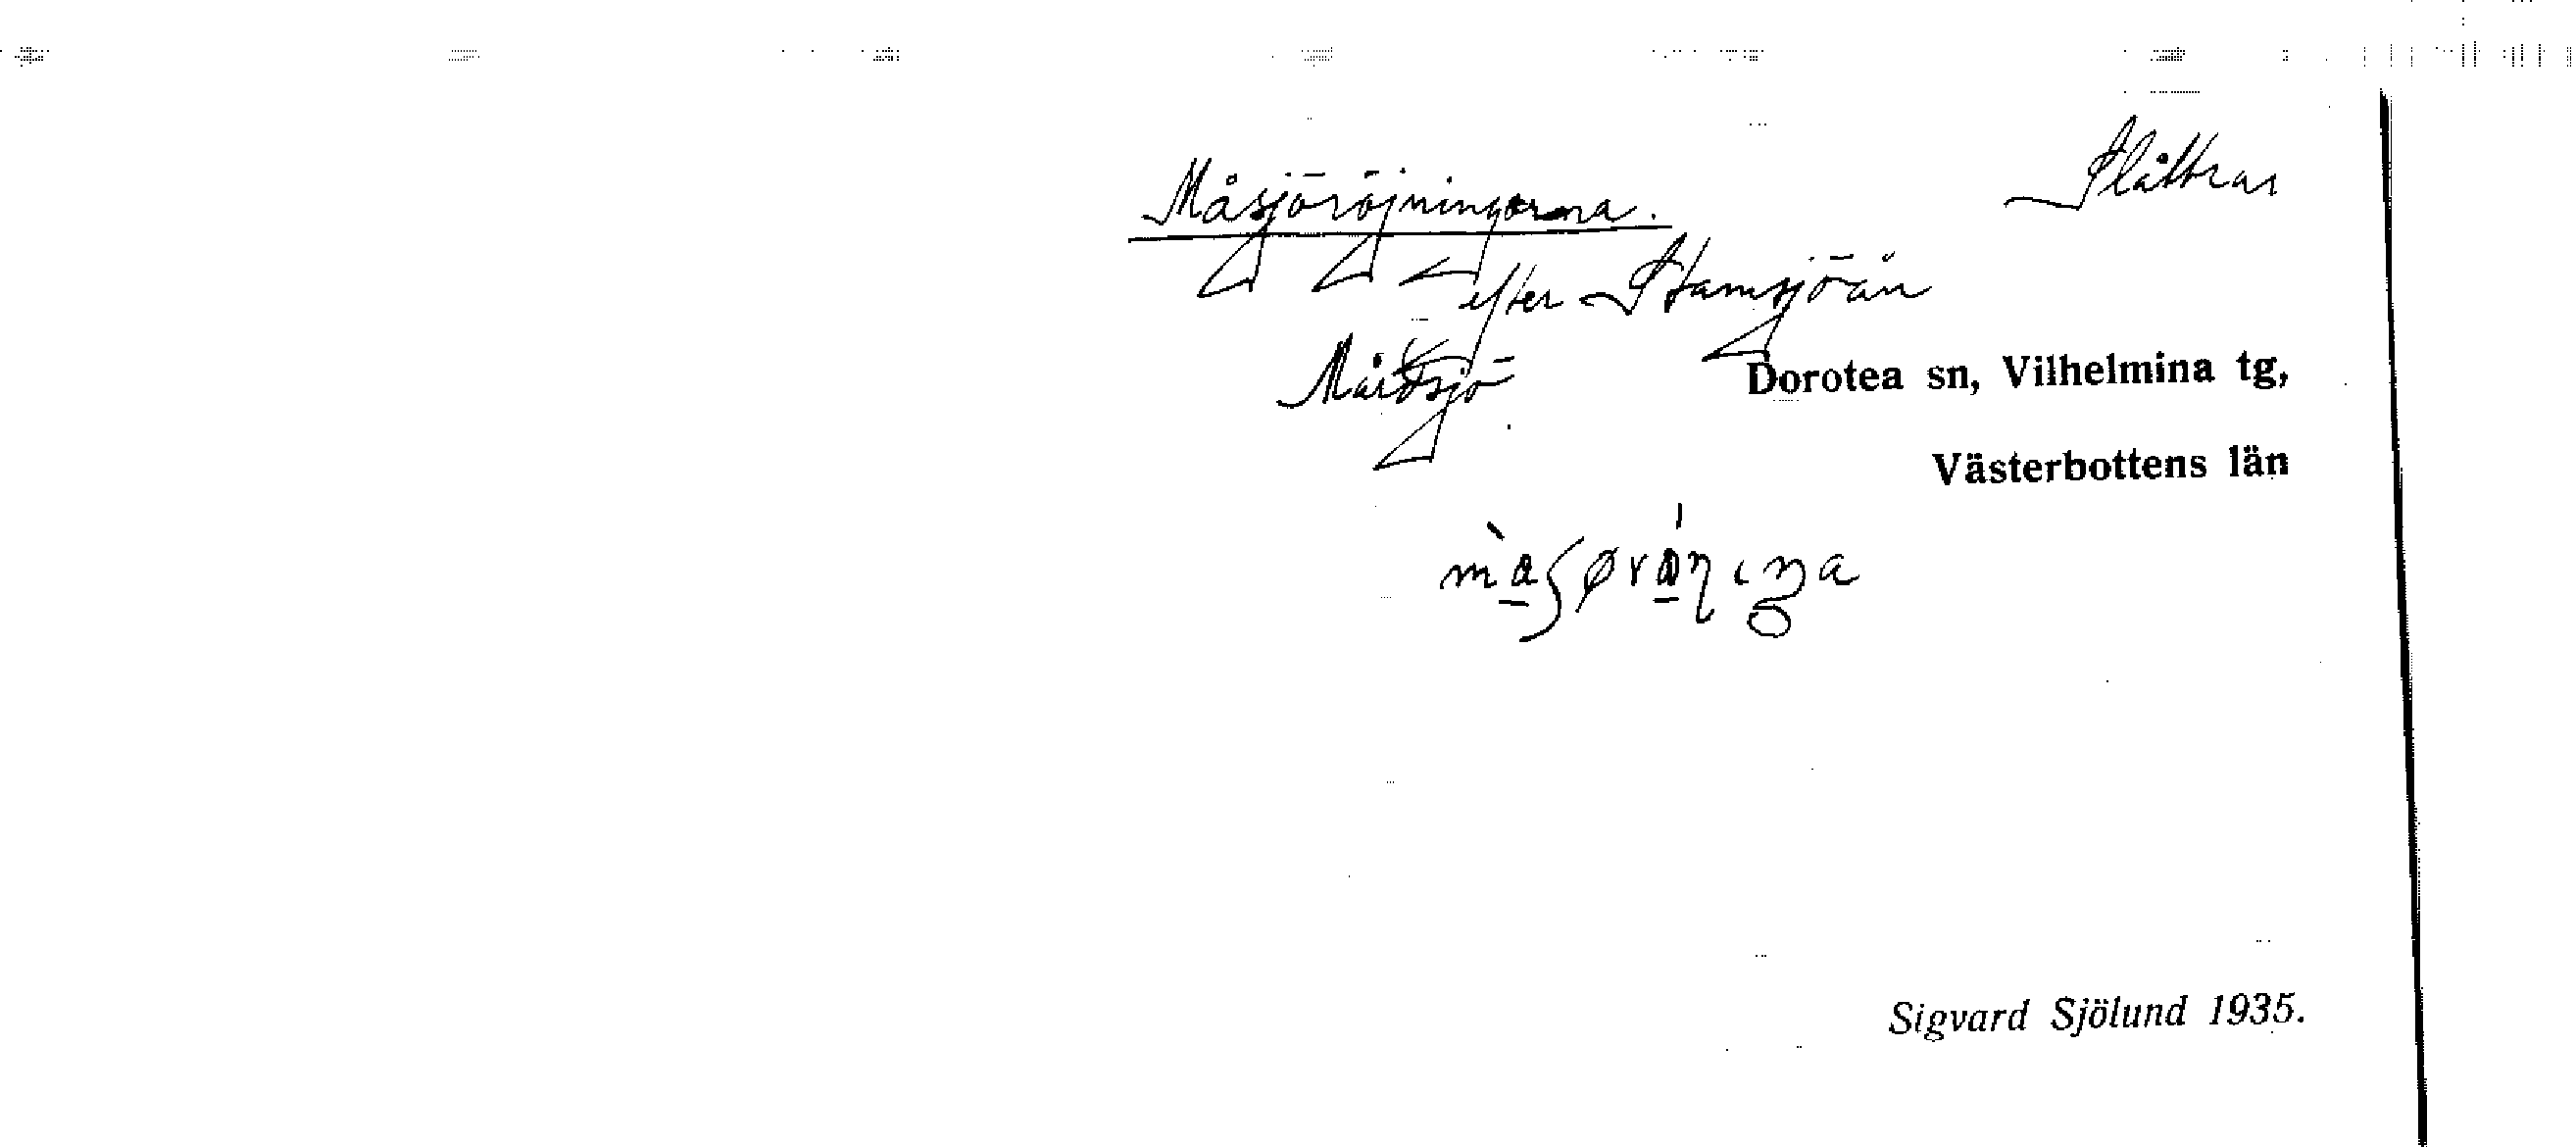 Måsjöröjningarna. Slåttrar
efter Stamsjöån
Mårdsjö Dorotea sn, Vilhelmina tg,
Västerbottens län
Sigvard Sjölund 1935.